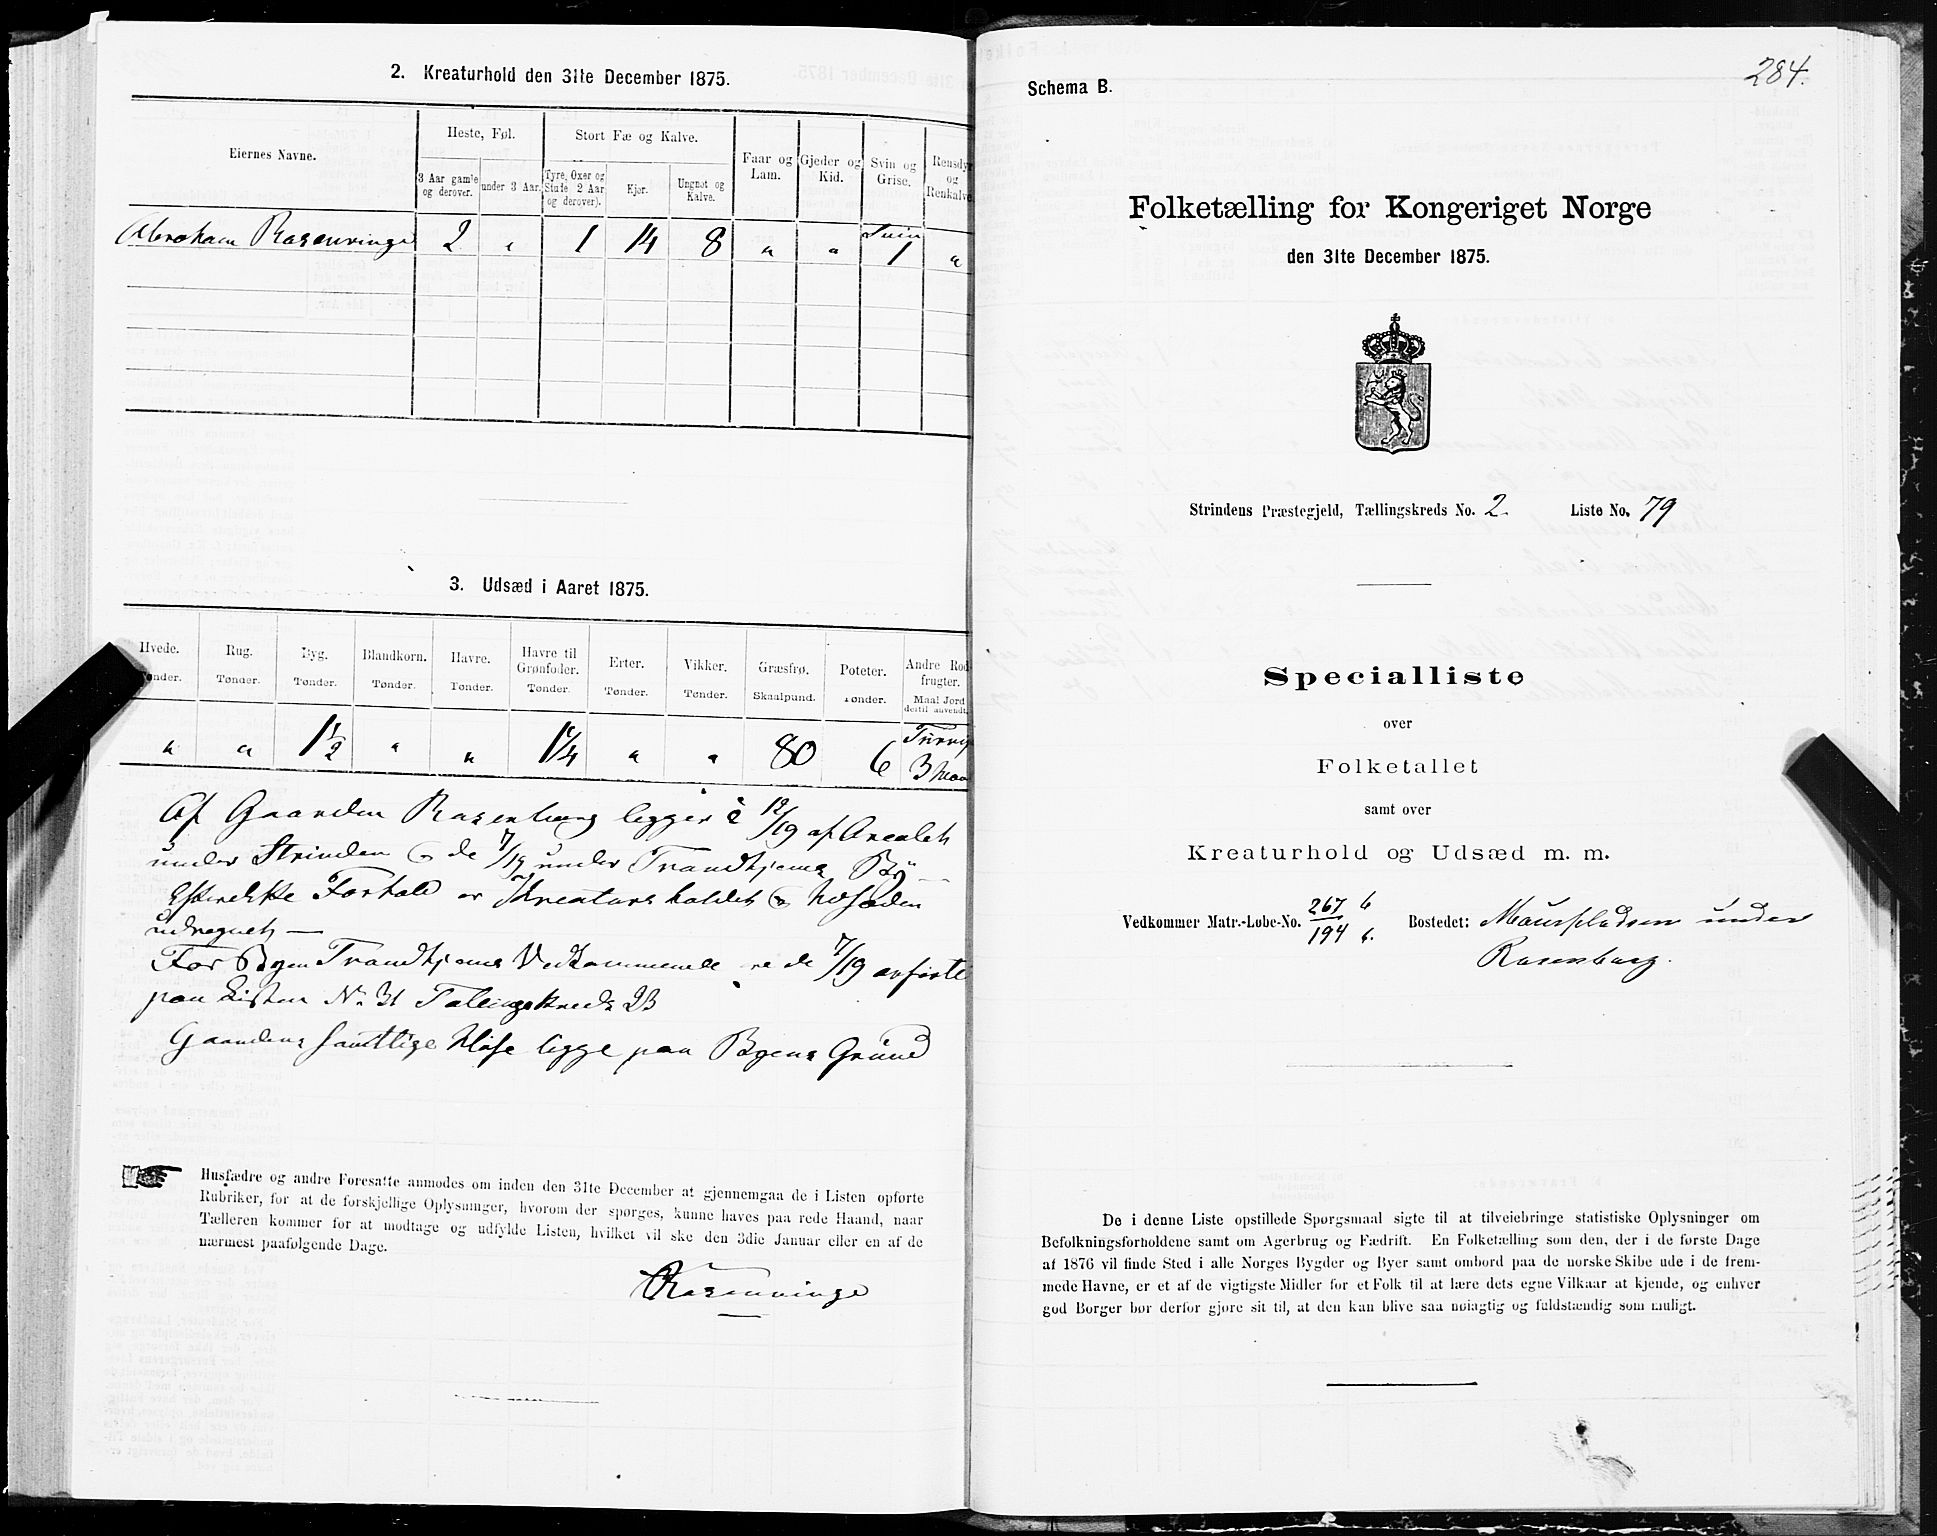 2. Kreaturhold den 31te December 1875.
Eiernes Navne.
Heste, Føl.
Stort Fæ og Kalve.
Faar og Lam.
Gjeder og Kid.
Svin og Grise.
Rensdyr og Renkalve
3 Aar gamle og derover.
under 3 Aar.
Tyre, Oxer og Stude (2 Aar og derover).
Kjør.
Ungnøt og Kalve.
Abraham Rosenvinge 2 " 1 14 8 " " Sviin 1 "
3. Udsæd i Aaret 1875.
Hvede. Rug. Byg. Blandkorn. Havre. Havre til Grønfoder. Erter. Vikker. Græsfrø. Poteter. Andre Rodfrugter.
Tønder. Tønder. Tønder. Tønder. Tønder. Tønder. Tønder. Tønder. Skaalpund. Tønder. Maal Jord dertil anvendt.
" " 1½ " " " " 80 6 3
Af Gaarden Rosenborg ligger 12/19 af Arealet
under Strinden & de 7/19 under Trondhjems By
Forhold er Kreaturholdet & Udsæden
udregnet —
For Byen Trondhjems Vedkommende de 7/19 anførte
paa Listen No 31 Tællingskreds 23
Gaardens samtlige Huse ligge paa Byens Grund
Husfædre og andre Foresatte anmodes om inden den 31te December at gjennemgaa de i Listen opførte
Rubriker, for at de forskjellige Oplysninger, hvorom der spørges, kunne haves paa rede Haand, naar
Tælleren kommer for at modtage og udfylde Listen, hvilket vil ske den 3die Januar eller en af de
nærmest paafølgende Dage.
Rosenvinge
284.
Schema B.
Folketælling for Kongeriget Norge
den 31te December 1875.
Strindens Præstegjeld, Tællingskreds No. 2. Liste No. 79
Specialliste
over
Folketallet
samt over
Kreaturhold og Udsæd m. m.
Vedkommer Matr.-Løbe-No. 267 b / 194 b. Bostedet: under
Rosenborg.
De i denne Liste opstillede Spørgsmaal sigte til at tilveiebringe statistiske Oplysninger om
Befolkningsforholdene samt om Agerbrug og Fædrift. En Folketælling som den, der i de første Dage
af 1876 vil finde Sted i alle Norges Bygder og Byer samt ombord paa de norske Skibe ude i de frem-
mede Havne, er et af de vigtigste Midler for et Folk til at lære dets egne Vilkaar at kjende, og enhver
god Borger bør derfor gjøre sit til, at den kan blive saa nøiagtig og fuldstændig som muligt.